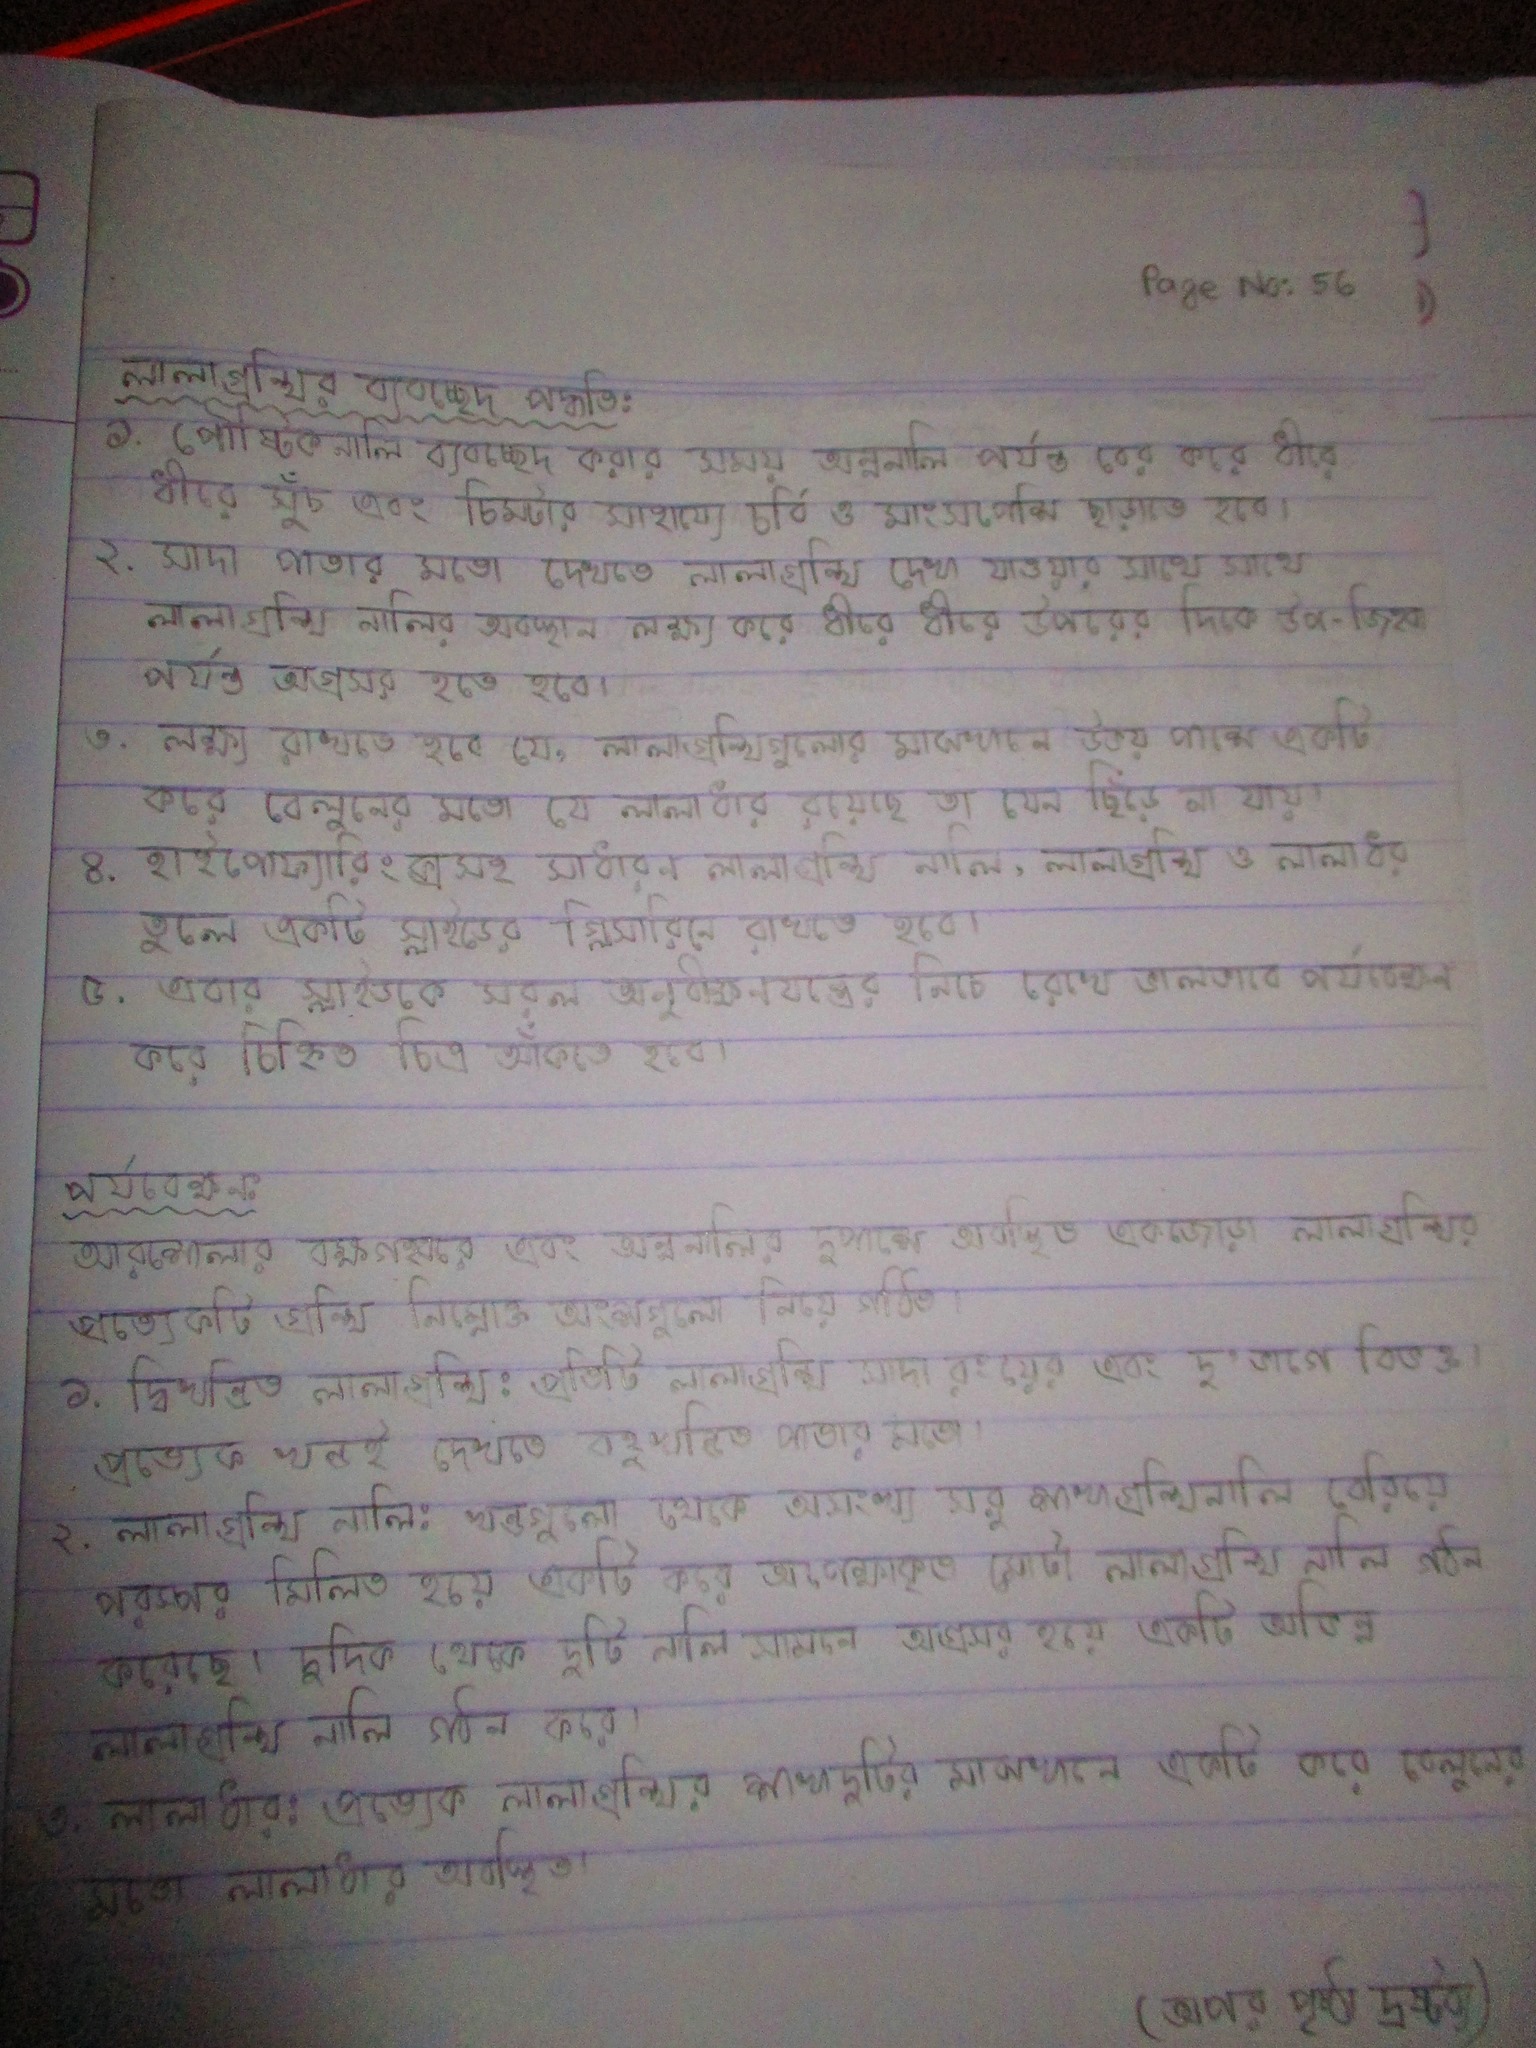 Page No: 56
লালাগ্রন্থির ব্যবচ্ছেদ পদ্ধতি:
১. পৌষ্টিকনালি ব্যবচ্ছেদ করার সময় অন্ননালি পর্যন্ত বের করে ধীরে
ধীরে সুঁচ এবং চিমটার সাহায্যে চর্বি ও মাংসপেশি ছাড়াতে হবে।
২. সাদা পাতার মতো দেখতে লালাগ্রন্থি দেখা যাওয়ার সাথে সাথে
লালাগ্রন্থি নালির অবস্থান লক্ষ্য করে ধীরে ধীরে উপরের দিকে উপ-জিহ্বা
পর্যন্ত অগ্রসর হতে হবে।
৩. লক্ষ্য রাখতে হবে যে, লালাগ্রন্থিগুলোর মাঝখানে উভয় পাশে একটি
করে বেলুনের মতো যে লালাধার রয়েছে তা যেন ছিঁড়ে না যায়।
৪. হাইপোফ্যারিংক্সসহ সাধারন লালাগ্রন্থি নালি, লালাগ্রন্থি ও লালাধার
তুলে একটি স্লাইডের গ্লিসারিনে রাখতে হবে।
৫. এবার স্লাইডকে সরল অনুবীক্ষনযন্ত্রের নিচে রেখে ভালভাবে পর্যবেক্ষন
করে চিহ্নিত চিত্র আঁকতে হবে।
পর্যবেক্ষন:
আরশোলার বক্ষগহ্বরে এবং অন্ননালির দুপাশে অবস্থিত একজোড়া লালাগ্রন্থির
প্রত্যেকটি গ্রন্থি নিম্নোক্ত অংশগুলো নিয়ে গঠিত।
১. দ্বিখন্ডিত লালাগ্রন্থি: প্রতিটি লালাগ্রন্থি সাদা রংয়ের এবং দু'ভাগে বিভক্ত।
প্রত্যেক খন্ডই দেখতে বহুখন্ডিত পাতার মতো।
২. লালাগ্রন্থি নালি: খন্ডগুলো থেকে অসংখ্য সরু শাখাগ্রন্থিনালি বেরিয়ে
পরস্পর মিলিত হয়ে একটি করে অপেক্ষাকৃত মোটা লালাগ্রন্থি নালি গঠন
করেছে। দুদিক থেকে দুটি নালি সামনে অগ্রসর হয়ে একটি অভিন্ন
লালাগ্রন্থি নালি গঠন করে।
৩. লালাধার: প্রত্যেক লালাগ্রন্থির শাখাদুটির মাঝখানে একটি করে বেলুনের
মতো লালাধার অবস্থিত।
(অপর পৃষ্ঠা দ্রষ্টব্য)